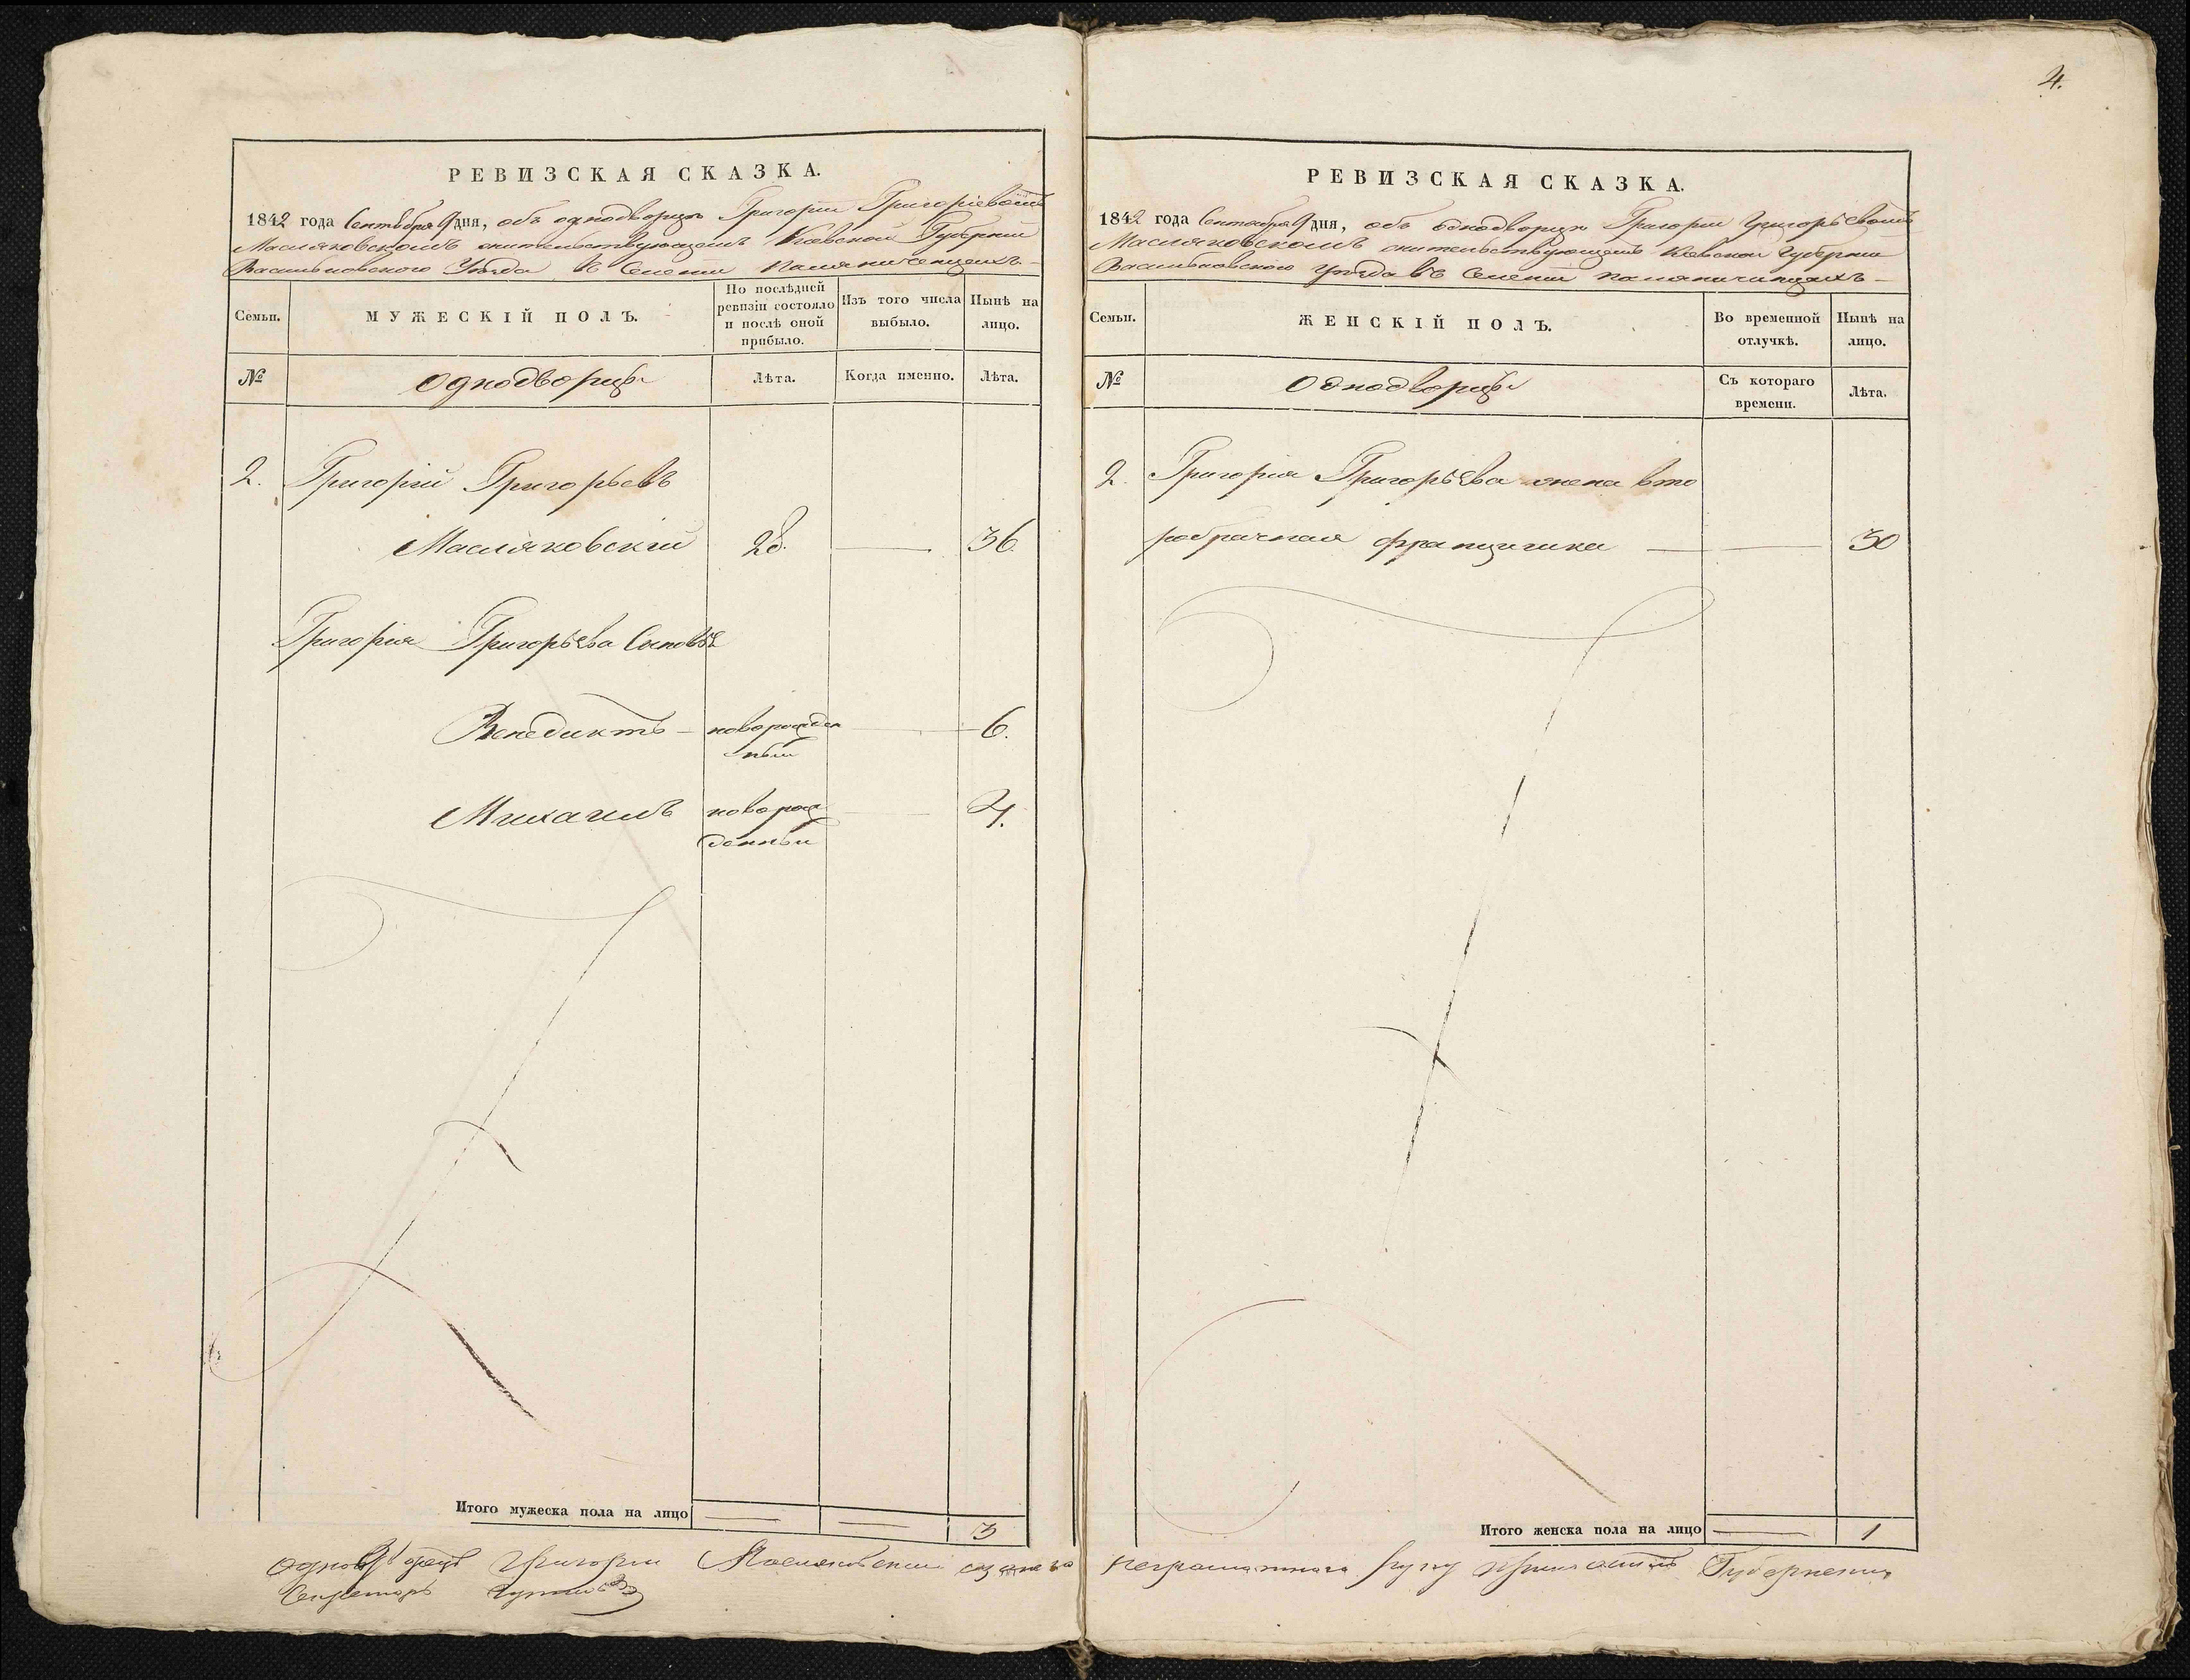 4.
РЕВИЗСКАЯ СКАЗКА.
1842 года Сентября 9 дня, объ однодворцѣ Григоріи Григоріевомъ
Масляковскомъ жительствующемъ Кіевской Губерніи
Васильковскаго Уѣзда въ Селеніи
Семьи.
МУЖЕСКІЙ ПОЛЪ.
По послѣдней
ревизіи состояло
и послѣ оной
прибыло.
Изъ того числа
выбыло.
Нынѣ на
лицо.
№
Однодворцы
Лѣта.
Когда именно.
Лѣта.
2. Григорій Григорьевъ
Масляковскій 28. — 36.
Григорія Григорьева Сыновья
Венедиктъ — новорожден — 6.
ный
Михаилъ новорож — 4.
денный
Итого мужеска пола на лицо — — 3
Однодворецъ Григорій Масляковскій а за него
Секретарь
РЕВИЗСКАЯ СКАЗКА.
1842 года Сентября 9 дня, объ однодворцѣ Григоріи Григорьевомъ
Масляковскомъ жительствующемъ Кіевской Губерніи
Васильковскаго Уѣзда въ Селеніи
Семьи.
ЖЕНСКІЙ ПОЛЪ.
Во временной
отлучкѣ.
Нынѣ на
лицо.
№
Однодворцы
Съ котораго
времени.
Лѣта.
2. Григорія Григорьева жена вто
робрачная Францишка — — 30
Итого женска пола на лицо — 1
неграматнаго руку приложилъ Губернскій